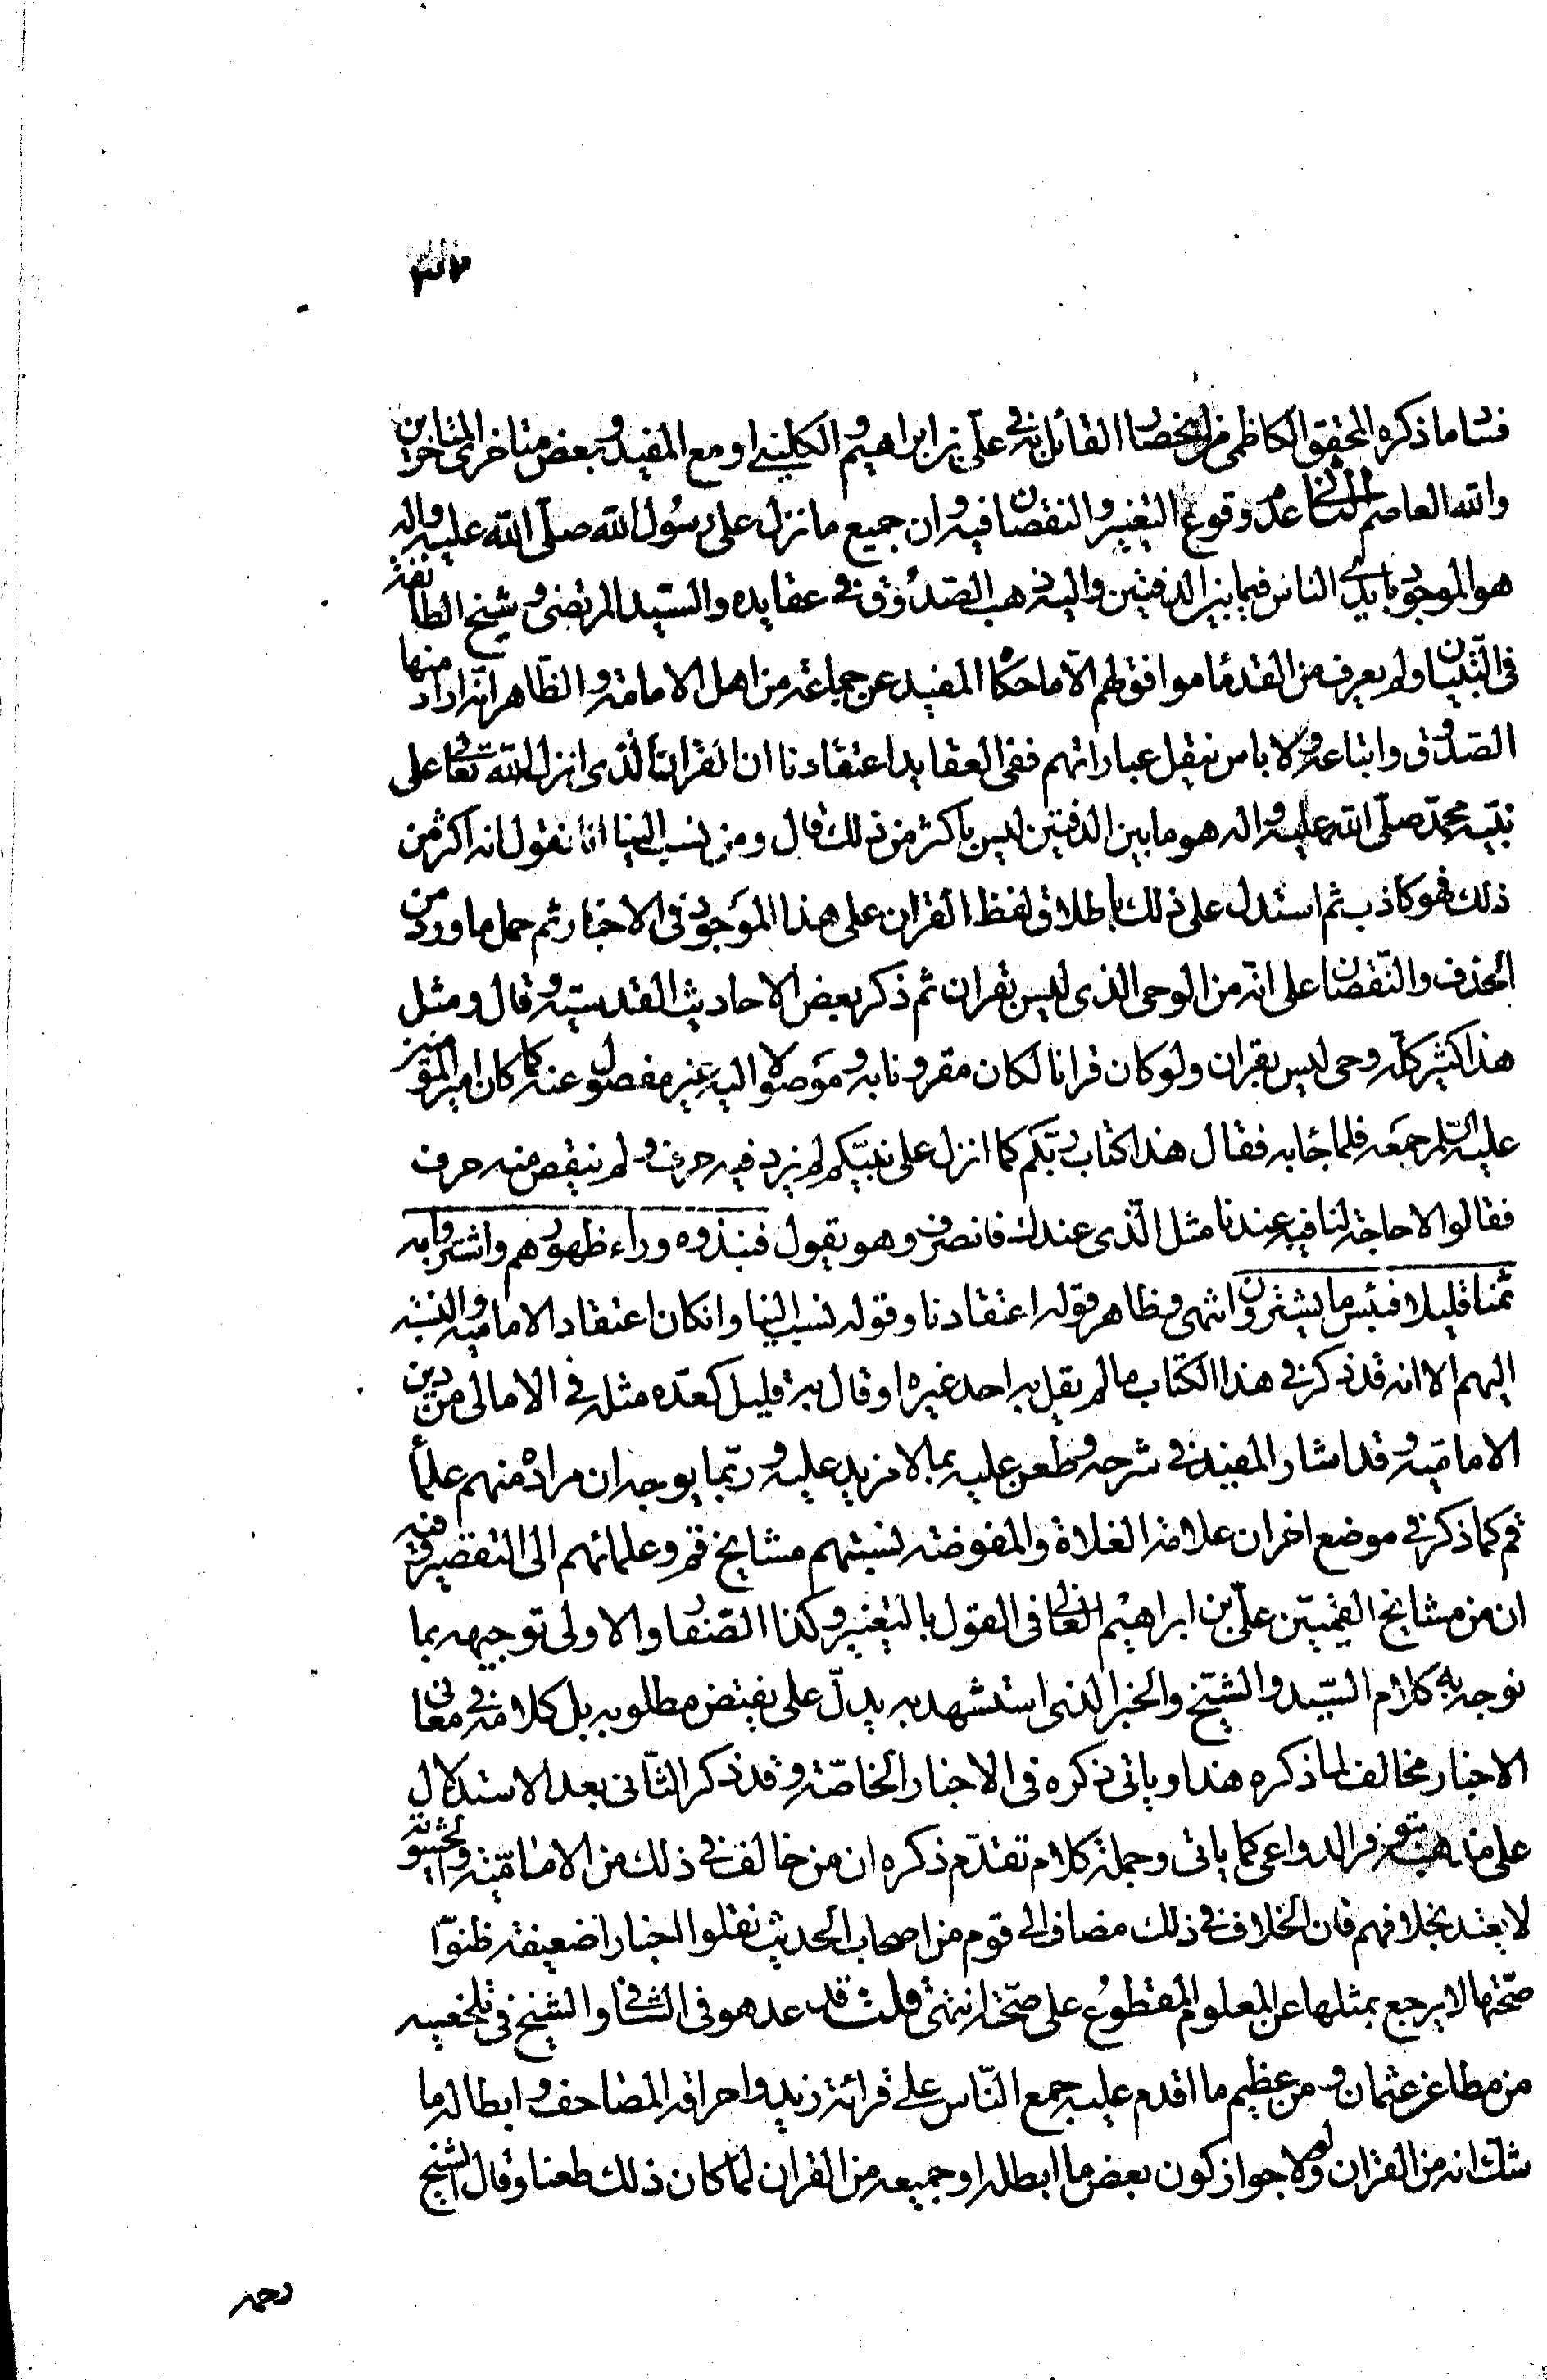 فساد ما ذكره المحقق الكاظمى من انحصار القائل به فى على بن ابراهيم و الكلينى او مع المفيد و بعض متاخرى المتاخرين
والله العاصم الثانى عدم وقوع التغيير و النقصان فيه و ان جميع ما نزل على رسول الله صلى الله عليه و اله
هو الموجود بايدى الناس فيما بين الدفتين واليه ذهب الصدوق فى عقايده والسيد المرتضى و شيخ الطائفة
فى التبيان و لم يعرف من القدماء موافق لهم الا ما حكاه المفيد عن جماعة من اهل الامامة و الظاهر انه اراد منها
الصدوق و اتباعه و لا باس بنقل عباراتهم ففى العقايد اعتقادنا ان القران الذى انزل الله تعالى على
نبيه محمد صلى الله عليه و اله هو ما بين الدفتين ليس باكثر من ذلك قال و من نسب الينا انا نقول انه اكثر من
ذلك فهو كاذب ثم استدل على ذلك باطلاق لفظ القران على هذا الموجود فى الاخبار ثم حمل ما ورد من
الحذف والنقصان على انه من الوحى الذى ليس بقران ثم ذكر بعض الاحاديث القدسية و قال و مثل
هذا كثير كله وحى ليس بقران ولو كان قرانا لكان مقرونا به و موصولا اليه غير مفصول عنه كما كان امير المؤمنين
عليه السلم جمعه فلما جاء به فقال هذا كتاب ربكم كما انزل على نبيكم لم يزد فيه حرف و لم ينقص منه حرف
فقالوا لا حاجة لنا فيه عندنا مثل الذى عندك فانصرف و هو يقول فنبذوه وراء ظهورهم واشتروا به
ثمنا قليلا فبئس ما يشترون انتهى و ظاهر قوله اعتقادنا و قوله نسب الينا و انكان اعتقاد الامامية و النسبة
اليهم الا انه قد ذكر فى هذا الكتاب ما لم يقل به احد غيره او قال به قليل كعده مثله فى الامالى من دين
الامامية و قد اشار المفيد فى شرحه و طعن عليه بما لا مزيد عليه و ربما يوجه ان مراده منهم علماء
قم كما ذكر فى موضع اخر ان علامة الغلاة والمفوضة نسبتهم مشايخ قم و علمائهم الى التقصير و فيه
ان من مشايخ القميين على بن ابراهيم الغالى فى القول بالتغيير و كذا الصفار و الاولى توجيهه بما
نوجه به كلام السيد و الشيخ والخبر الذى استشهد به يدل على نقيض مطلوبه بل كلامه فى معانى
الاخبار مخالف لما ذكره هنا و ياتى ذكره فى الاخبار الخاصة و قد ذكر الثانى بعد الاستدلال
على مذهبه بتوفر الدواعى كما ياتى و جملة كلام تقدم ذكره ان من خالف فى ذلك من الامامية والحشوية
لا يعتد بخلافهم فان الخلاف فى ذلك مضاف الى قوم من اصحاب الحديث نقلوا اخبارا ضعيفة ظنوا
صحتها لا يرجع بمثلها عن المعلوم المقطوع على صحته انتهى قلت قد عد هو فى الشافى و الشيخ فى تلخيصه
من مطاعن عثمان و من عظيم ما اقدم عليه جمع الناس على قرائة زيد و احراقه المصاحف و ابطاله ما
شك انه من القران و لولا جواز كون بعض ما ابطله او جميعه من القران لما كان ذلك طعنا و قال الشيخ